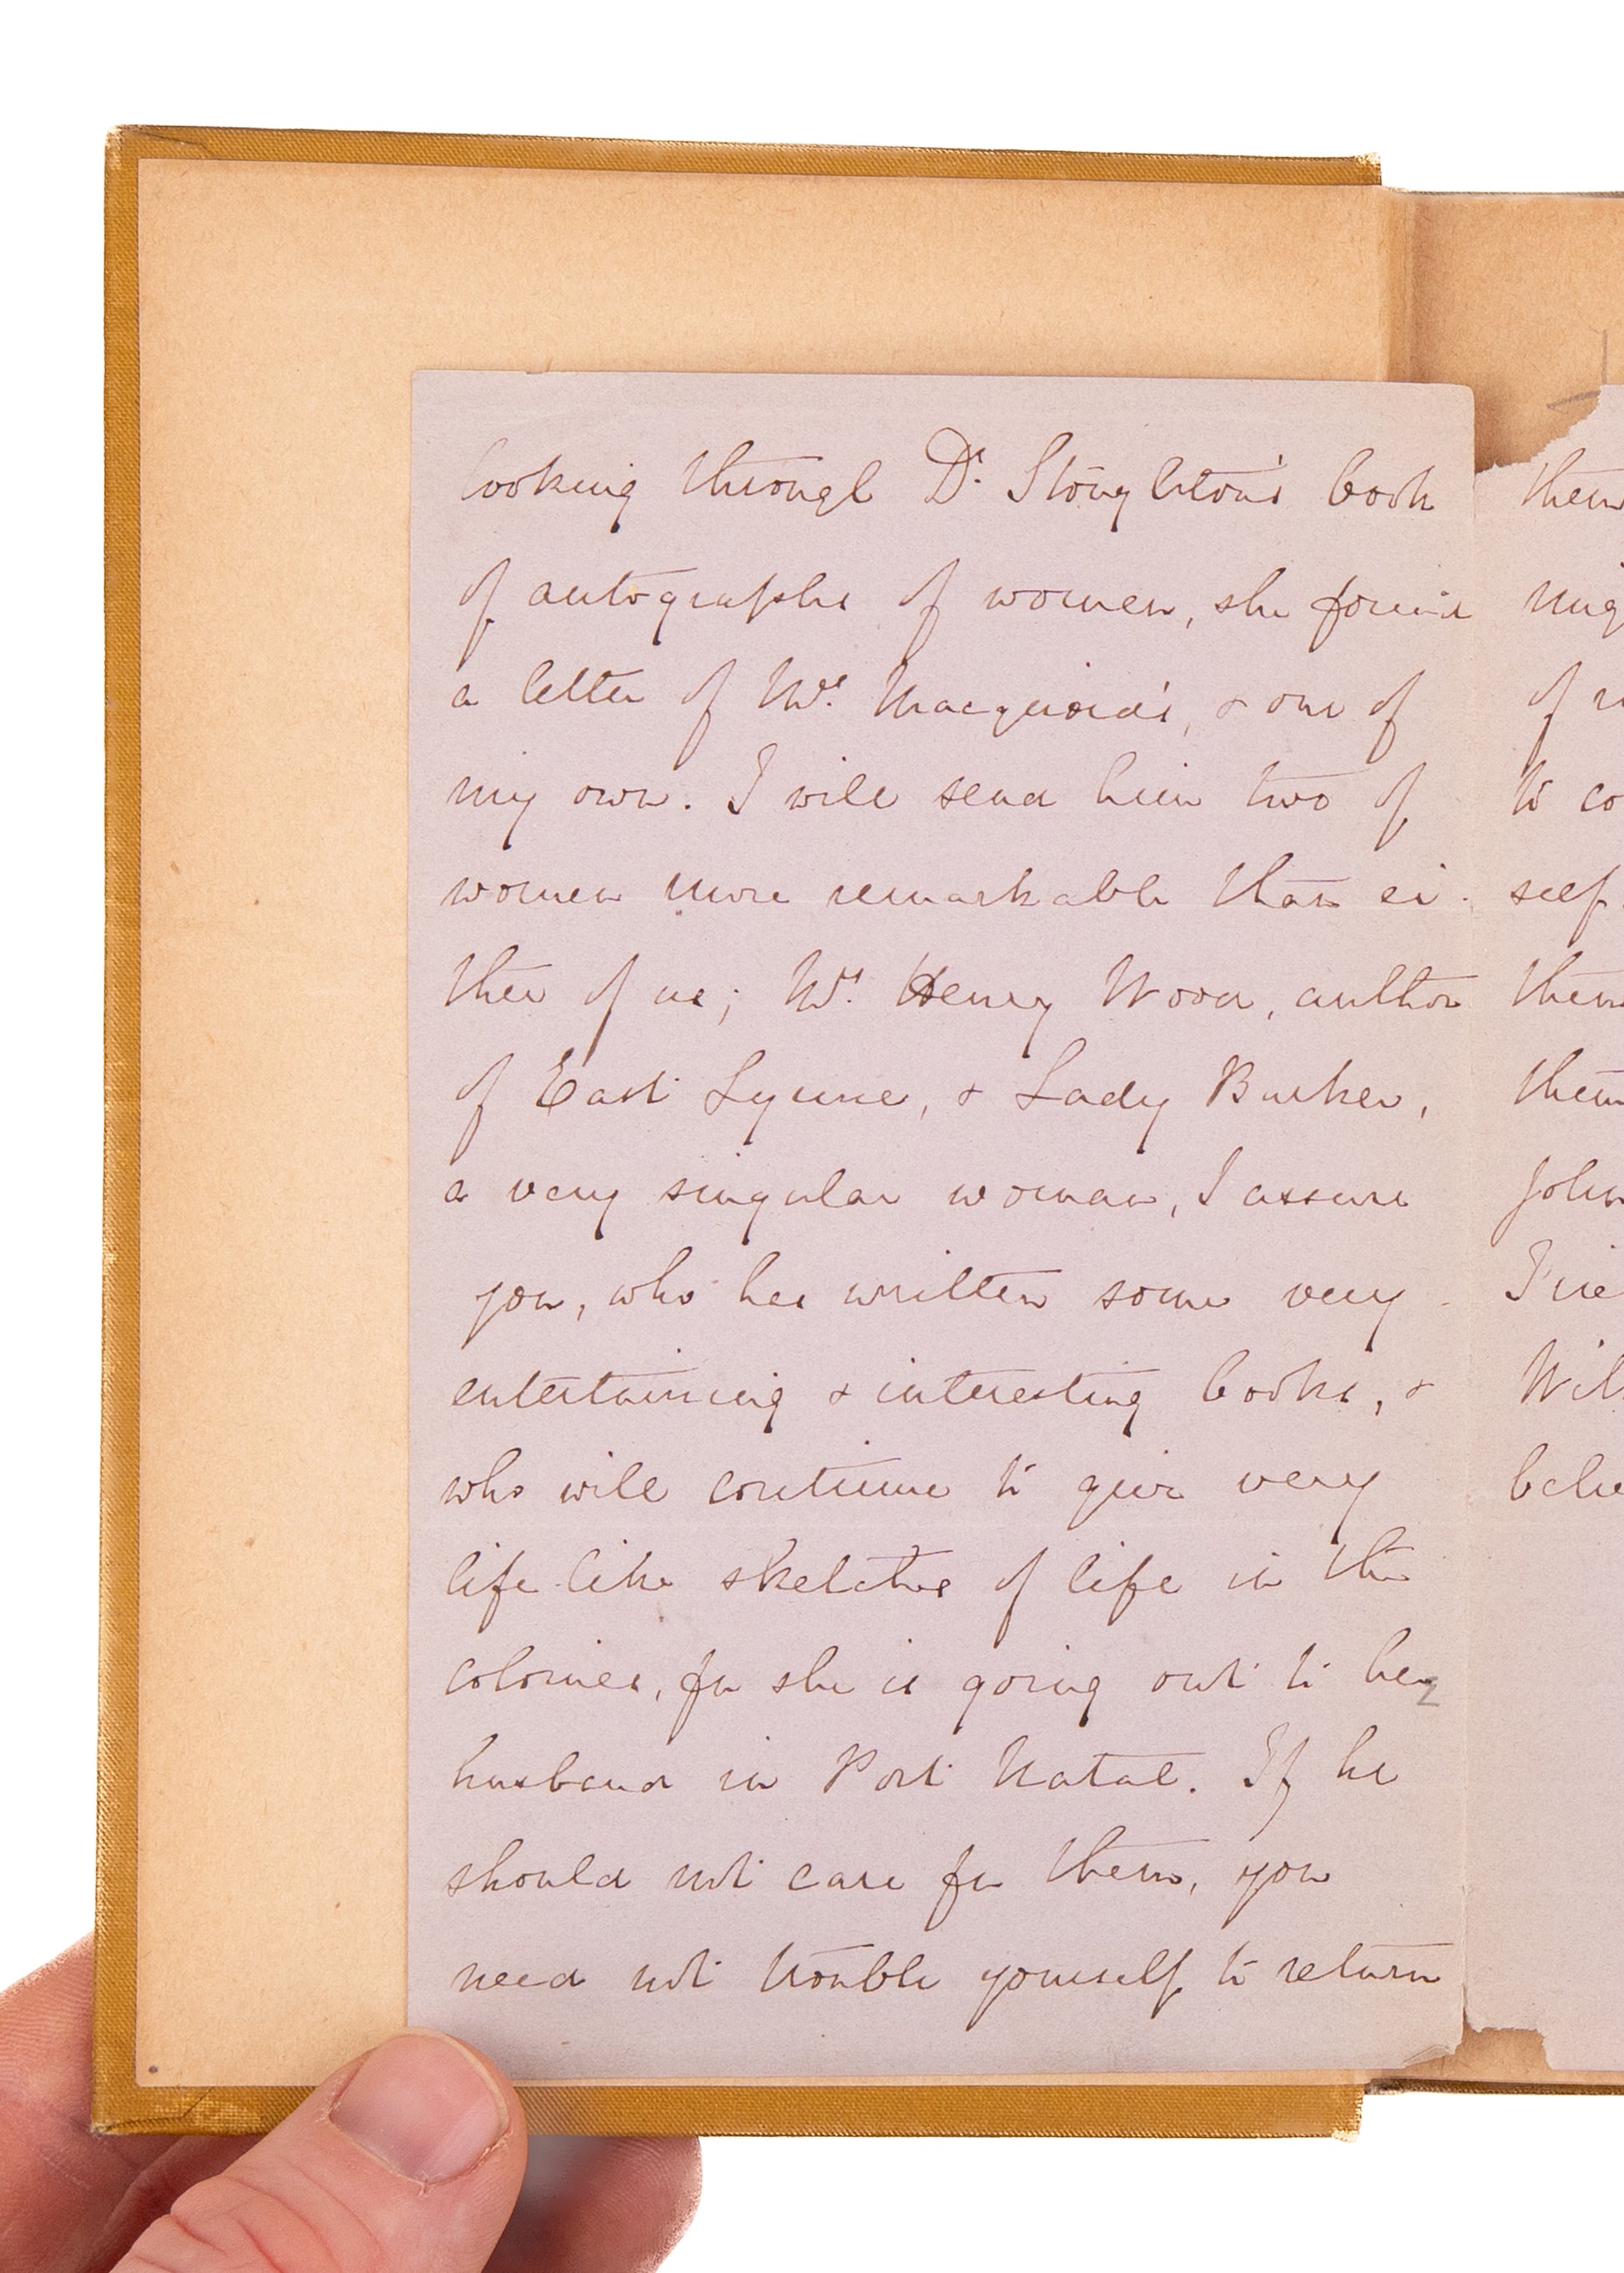 looking through Dr. Stoughton's book
of autographs of women, she found
a letter of Mrs. Macquoid's, & one of
my own. I will send him two of
women more remarkable than ei-
ther of us; Mrs. Henry Wood, author
of East Lynne, & Lady Barker,
a very singular woman, I assure
you, who has written some very
entertaining & interesting books, &
who will continue to give very
life-like sketches of life in the
colonies, for she is going out to her
husband in Port Natal. If he
should not care for them, you
need not trouble yourself to return
2
them
of
to co
self
them
them
John